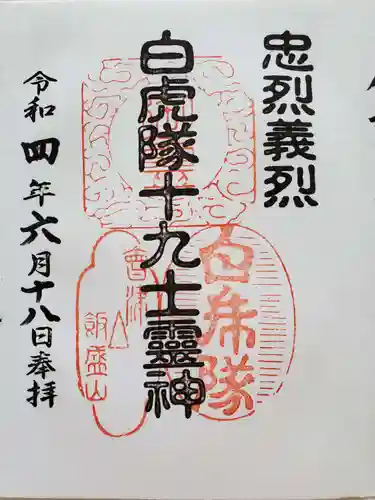 忠烈義烈
白虎隊十九士靈神
白虎隊
會津
飯盛山
令和四年六月十八日奉拝